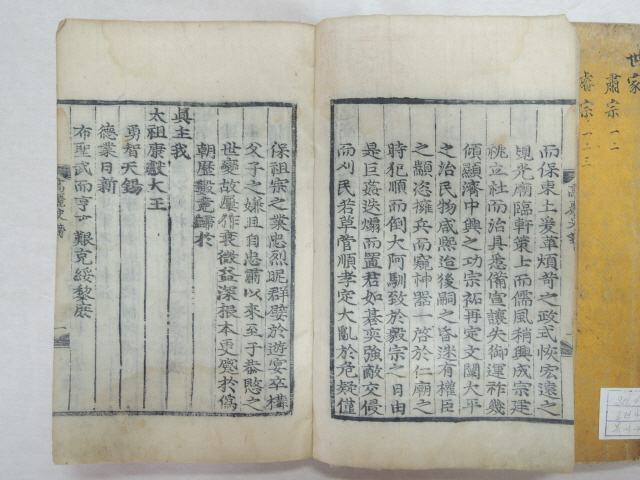 世家
肅宗 一二
睿宗 一二三
而保東土爰革煩苛之政式恢宏遠之
規光廟臨軒策士而儒風稍興成宗建
祧立社而治具悉備宣讓失御運祚幾
傾顯濟中興之功宗祏再定文闡太平
之治民物咸熙迨後嗣之昏迷有權臣
之顓恣擁兵而窺神器一啓於仁廟之
時犯順而倒大阿馴致於毅宗之日由
是巨姦迭煽而置君如碁奕強敵交侵
而刈民若草菅順孝定大亂於危疑僅
保祖宗之業忠烈昵群嬖於遊宴卒構
父子之嫌且自忠肅以來至于恭愍之
世變故屢作衰微益深根本更蹙於僞
朝歷數竟歸於
眞主我
太祖康獻大王
勇智天錫
德業日新
布聖武而亨屯艱克綏黎庶
高麗史箋 一